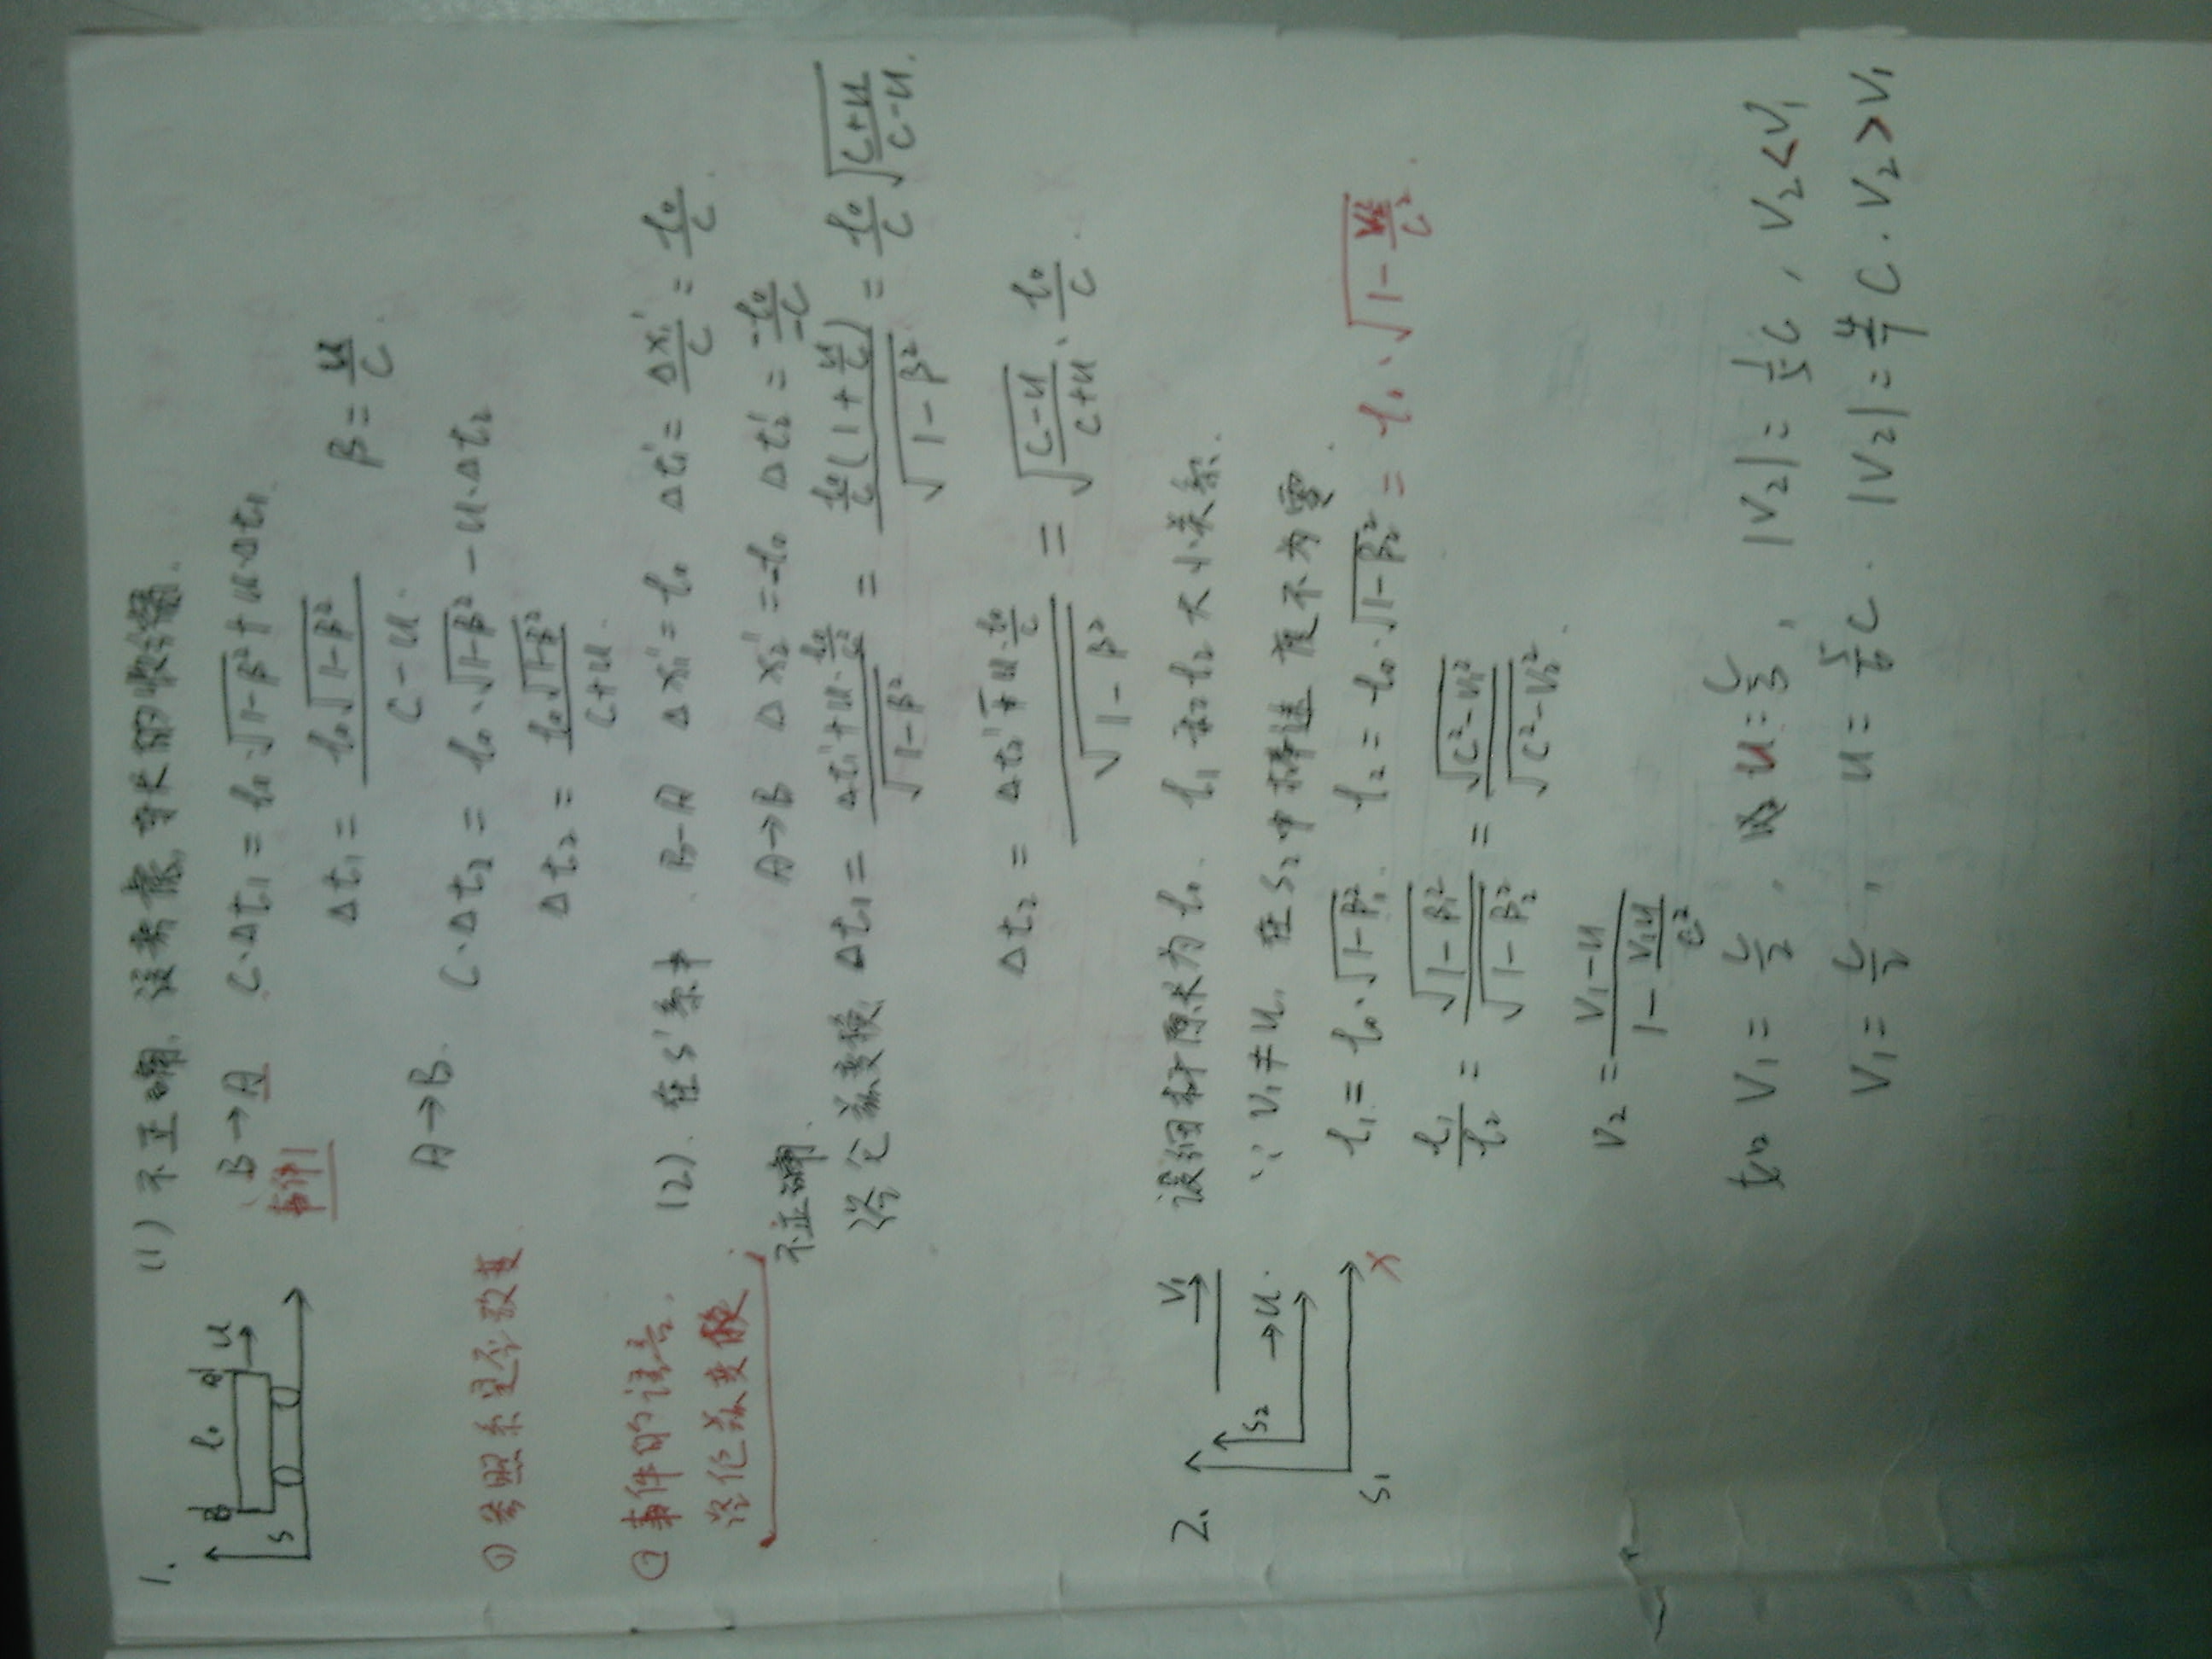 1.
(1) 不正确, 没考虑, 车长的收缩.
B l₀ A u
S
B→A C·Δt₁ = l₀·√(1-β²) + u·Δt₁
事件1
Δt₁ = l₀√(1-β²) / (C-u). β = u/C.
A→B.
C·Δt₂ = l₀·√(1-β²) - u·Δt₂
① 参照系是否改变.
Δt₂ = l₀√(1-β²) / (C+u).
② 事件的语言.
(2). 在S'系中, B-A Δx₁' = l₀ Δt₁' = Δx₁'/C = l₀/C.
洛伦兹变换;
A→B Δx₂' = -l₀ Δt₂' = -l₀/-C
不正确.
洛仑兹变换 Δt₁ = (Δt₁' + u·l₀/C²) / √(1-β²) = l₀/C (1+u/C) / √(1-β²) = l₀/C √((C+u)/(C-u)).
Δt₂ = (Δt₂' - u·l₀/C) / √(1-β²) = √((C-u)/(C+u)) · l₀/C.
2.
V₁
S₂ →u.
S₁ X
设细杆原长为l₀. l₁和l₂大小关系.
∵ V₁≠u, 在S₂中棒速度不为零.
l₁ = l₀·√(1-β₁²). l₂ = l₀·√(1-β₂²) = l₀·√(1-V₂²/C²).
l₁/l₂ = √(1-β₁²) / √(1-β₂²) = √(C²-V₁²) / √(C²-V₂²).
V₂ = (V₁-u) / (1-V₁u/C²)
如 V₁ = C/2, u = C/3, |V₂| = 1/5 C, V₂<V₁
V₁ = C/2, u = 5/6 C. |V₂| = 4/7 C. V₂>V₁